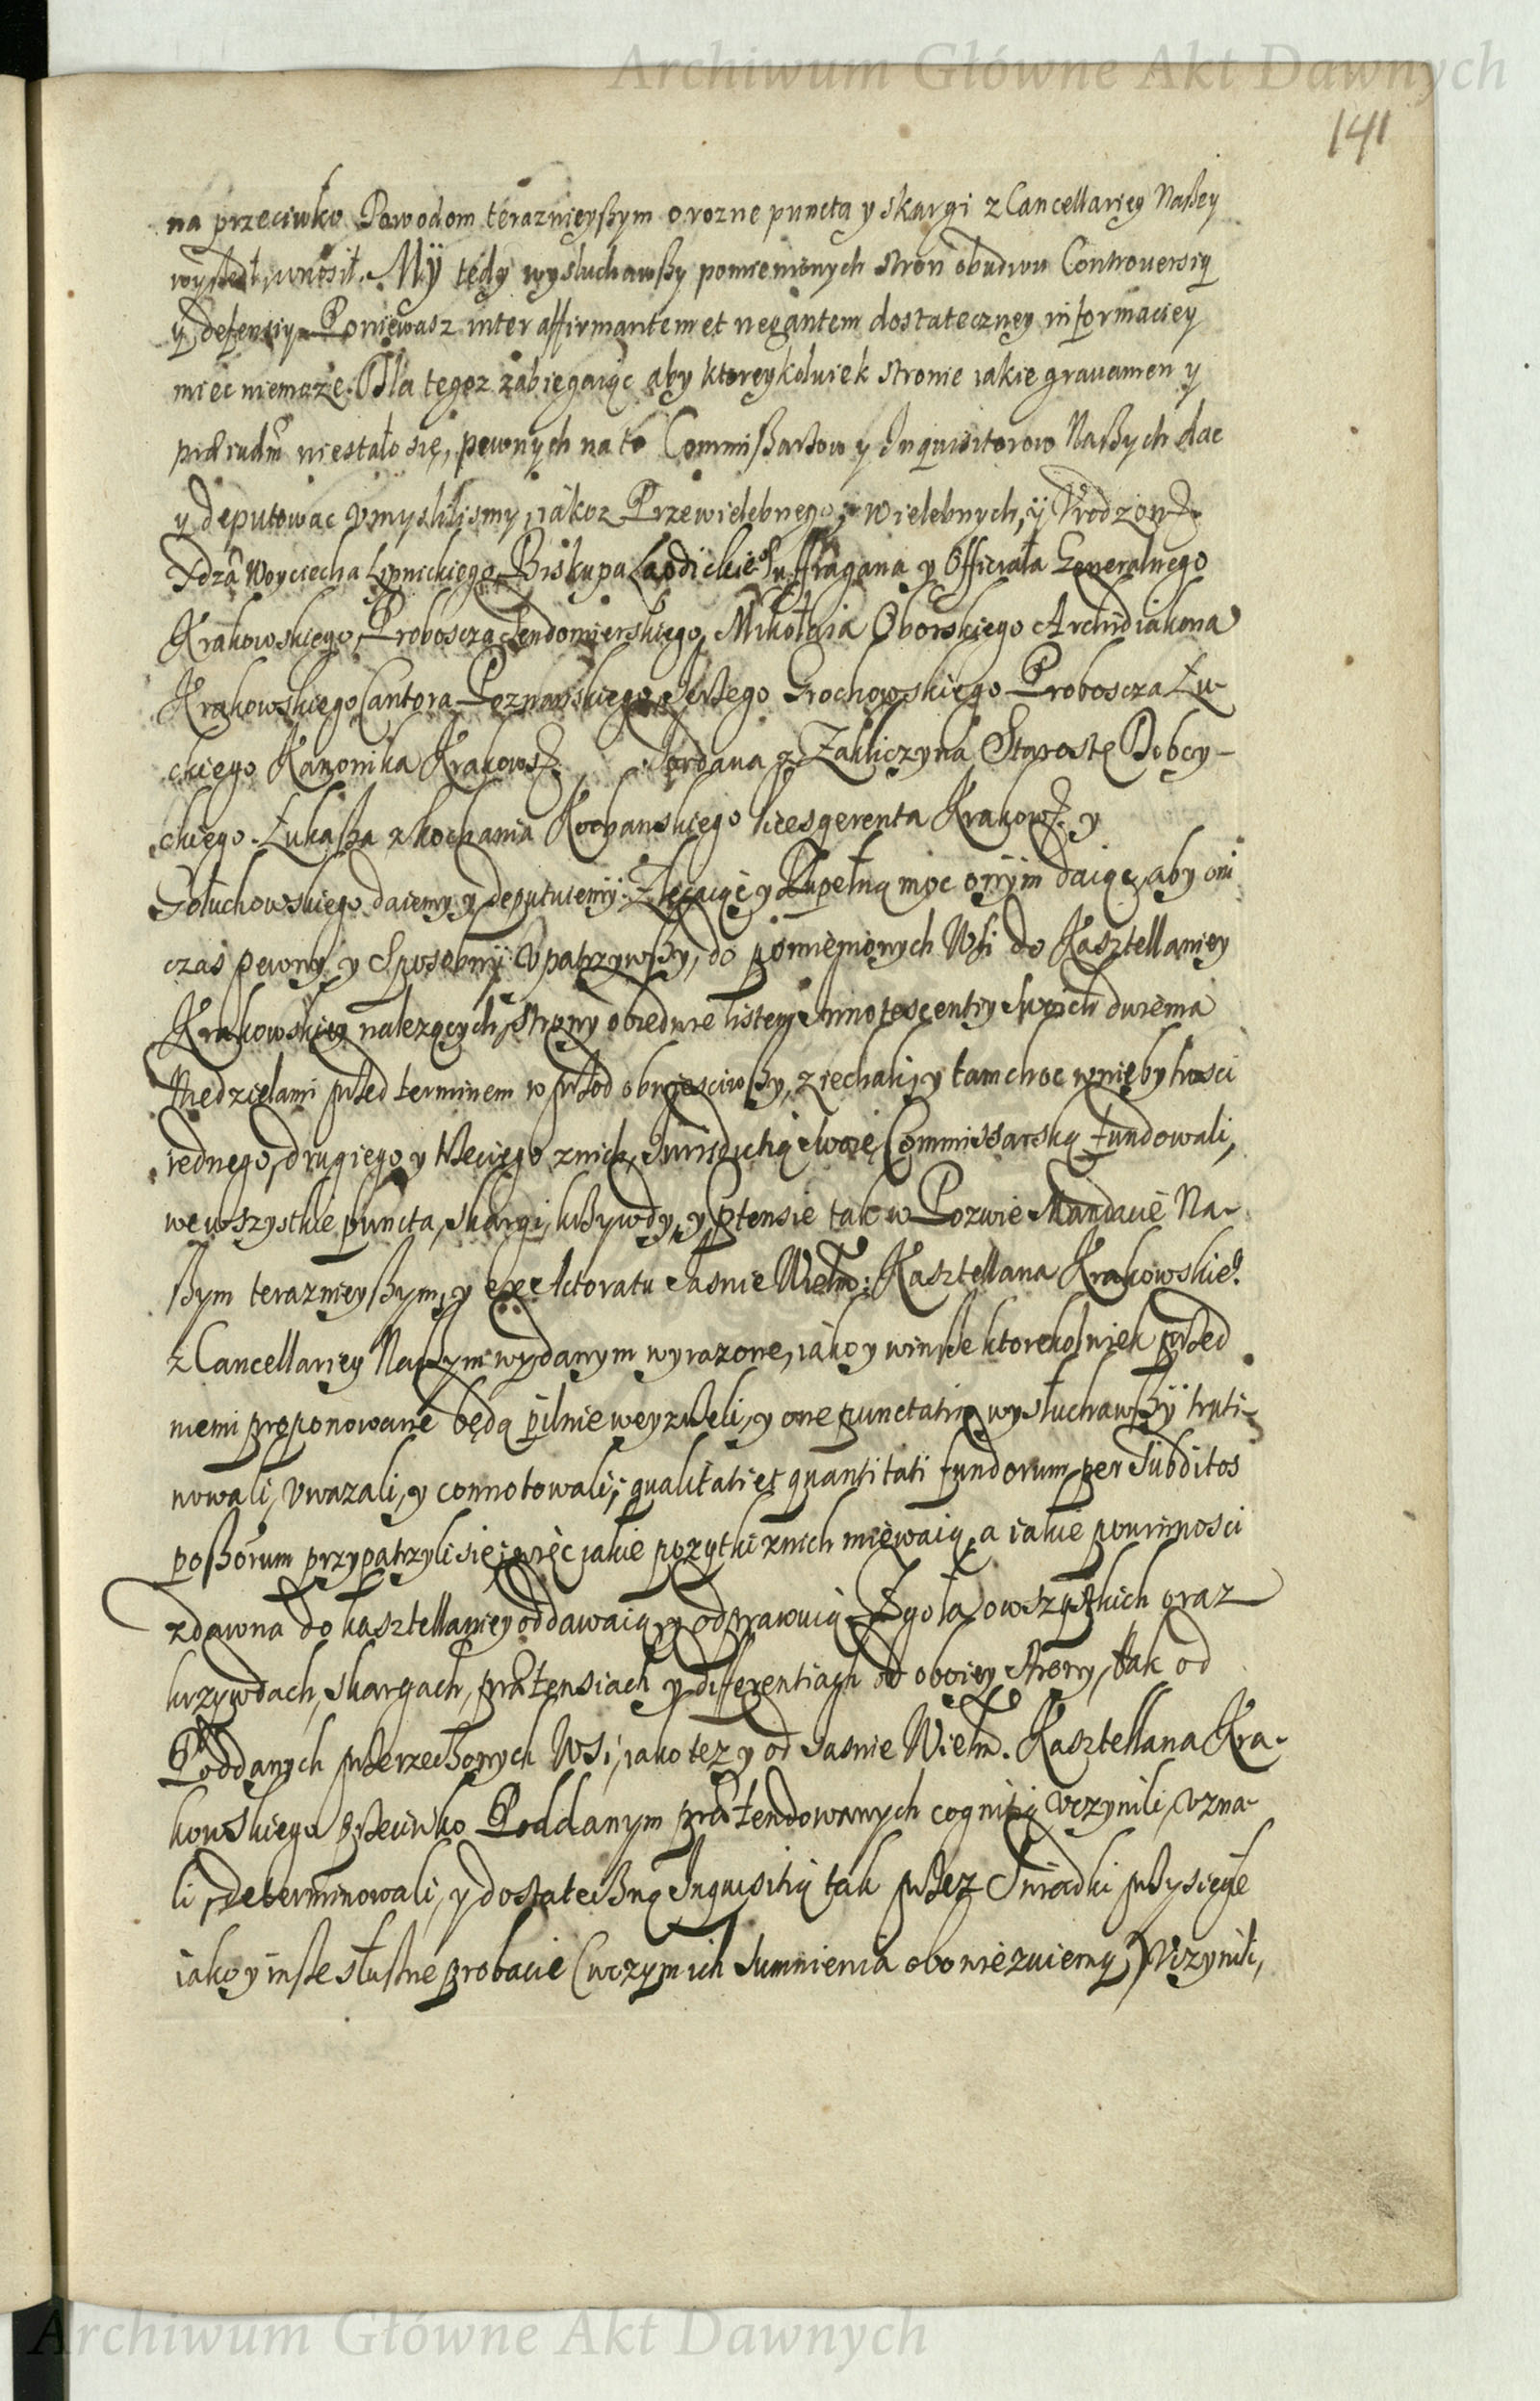 Archiwum Główne Akt Dawnych
141
na przeciwko Powodom teraznieyßym o rozne puncta y skargi z Cancellariey Naßey
wyßedł, wnosił. Mÿ tedy wysłuchawßy pomienionych stron obudwu Controuersią
y defensią. Poniewasz inter affirmantem et negantem dostateczney informaciey
miec niemoże. Dla tegoz zabiegaiąc aby ktoreykolwiek stronie iakie grauamen y
niestało się, pewnych na to Commißarzow y Inquisitorow Naßych dac
y deputowac vmyslilismy, iákoz Przewielebnego, Wielebnych, ÿ Vrodzon:
Xdza Woyciecha Lipnickiego Biskupa Laodickieo Suffragana y Officiała Generalnego
Krakowskiego, Proboscza Sendomierskiego, Mikołaia Oborskiego Archidiakona
Krakowskiego Cantora Poznanskiego, Jerzego Grochowskiego Proboscza Łu-
ckiego Kanonika Krakows: , Jordana z Zakliczyna Starostę Dobczy-
ckiego. Łukaßa z kochania Kochanskiego Vicesgerenta Krakow: y
Gołuchowskiego daiemy y deputuiemÿ. Zlecaiąc y Zupełną moc onÿm daiąc, aby oni
czas pewny y Sposobnÿ Vpatrzywßy, do pomienionych Wsi do Kasztellaniey
Krakowskiey nalezących, strony obiedwie listem Innotescentiy Swoich dwiema
Niedzielami przed terminem w przod obwiesciwßy, ziechali, y tam choc w niebytnosci
iednego, drugiego y trzeciego znich, Jurisdictią swoię Commissarską fundowali,
we wszystkie puncta, skargi, krzywdy, y ptensie tak w Pozwie Mandacie Na-
ßym teraznieyßym, y ex Actoratu Jasnie Wielm: Kasztellana Krakowskieo
z Cancellariey Naßym wydanym wyrazone, iako y winße ktorekolwiek przed
niemi proponowane będą pilnie weyzrzeli, y one punctatim wysłuchawßÿ truti-
nowali, vwazali, y connotowali; qualitati et quantitati fundorum per Subditos
poßorum przypatrzyli się, więc iakie pozytki znich miewaią, a iakie powinnosci
zdawna do kasztellaniey oddawaią y odprawuią. Zgoła o wszystkich oraz
krzywdach, skargach, prætensiach y differentiach od oboiey strony, tak od
Poddanych przerzeczonych Wsi, iako tez y od Jasnie Wielm. Kasztellana Kra-
kowskiego przeciwko Poddanym prætendowanych cognitią Vczynili, vzna-
li, determinowali, y dostateczną Inquisitią tak przez Swiadki przysięgłe
iako y inße słußne probacie (w czym ich Sumnienia obowiezuiemy) Vczynili,
Archiwum Główne Akt Dawnych